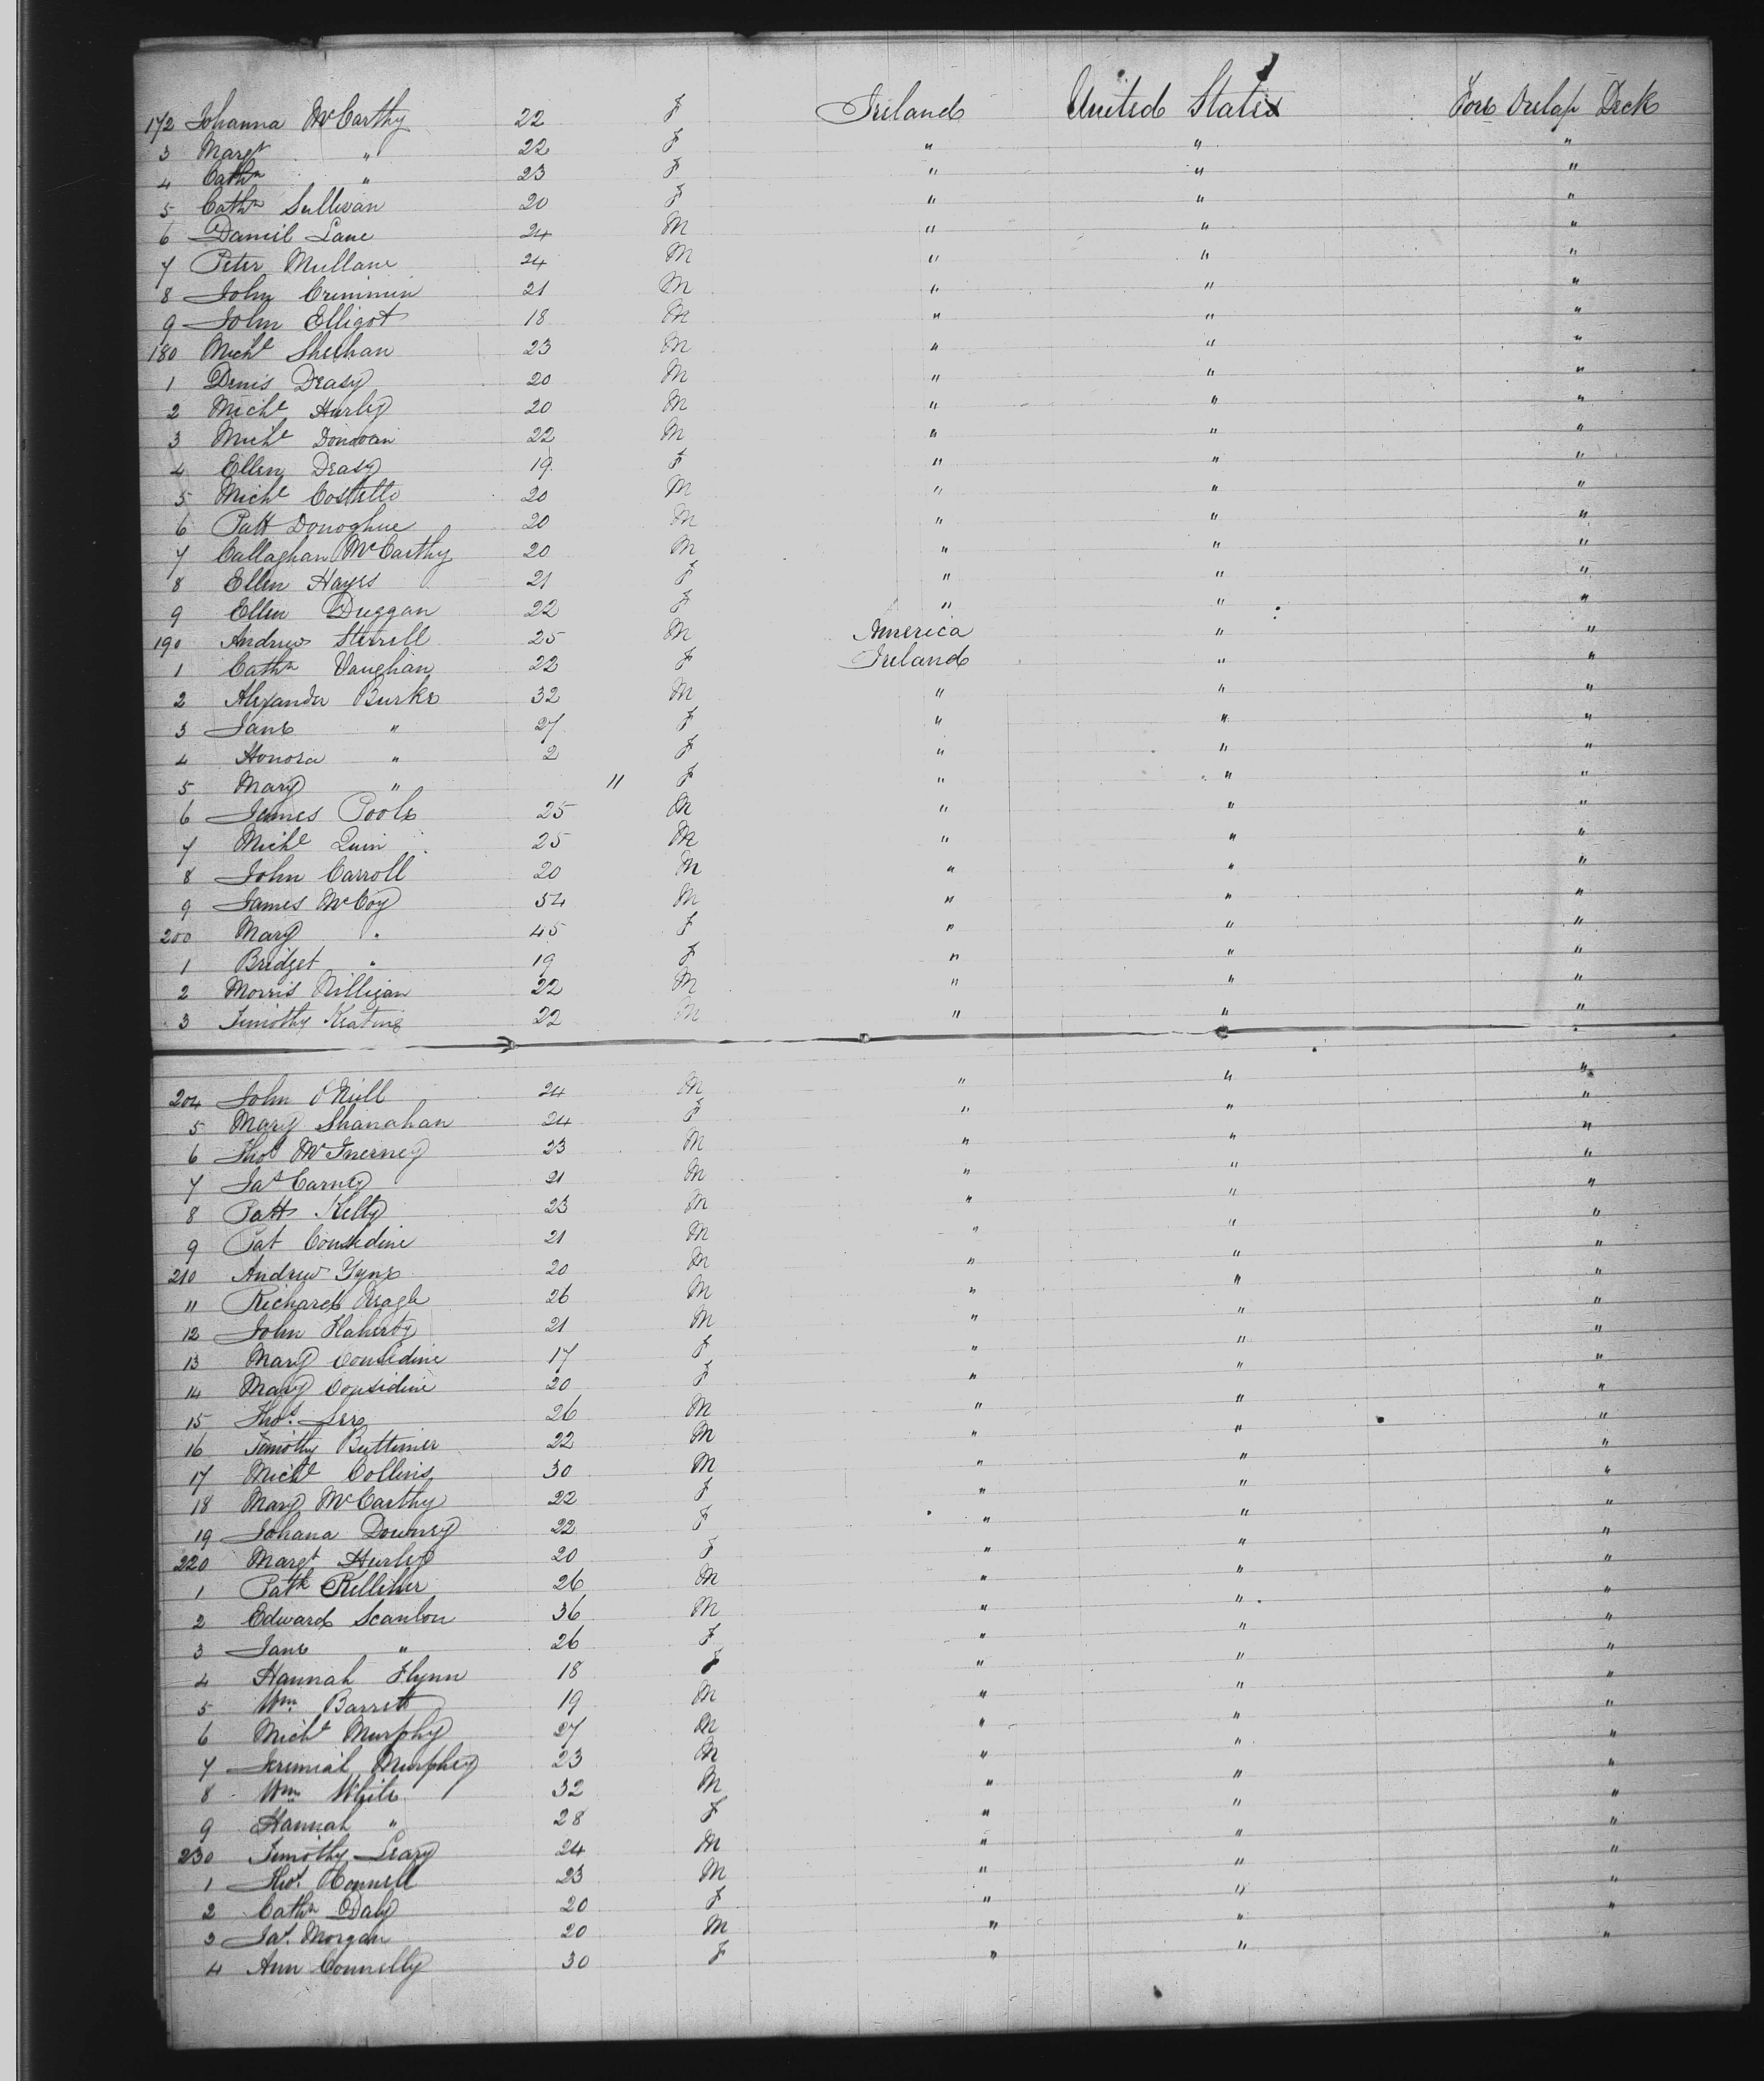 172 Johanna McCarthy 22 F Ireland United States Fore Orlop Deck
3 Margt " 22 F " " "
4 Cathn " 23 F " " "
5 Cathn Sullivan 20 F " " "
6 Daniel Lane 24 M " " "
7 Peter Mullane 24 M " " "
8 John Crimmin 21 M " " "
9 John Elligot 18 M " " "
180 Michl Sheehan 23 M " " "
1 Denis Deasy 20 M " " "
2 Michl Hurley 20 M " " "
3 Michl Donovan 22 M " " "
4 Ellen Deasy 19 F " " "
5 Michl Costello 20 M " " "
6 Patt Donoghue 20 M " " "
7 Callaghan McCarthy 20 M " " "
8 Ellen Hayes 21 F " " "
9 Ellen Duggan 22 F " " "
190 Andrew Sterrill 25 M America " "
1 Cathn Vaughan 22 F Ireland " "
2 Alexander Burke 32 M " " "
3 Jane " 27 F " " "
4 Honora " 2 F " " "
5 Mary " 11 F " " "
6 James Poole 25 M " " "
7 Michl Quin 25 M " " "
8 John Carroll 20 M " " "
9 James McCoy 54 M " " "
200 Mary " 45 F " " "
1 Bridget " 19 F " " "
2 Morris Nilligan 22 M " " "
3 Timothy Keating 22 M " " "
204 John O'Neill 24 M " " "
5 Mary Shanahan 24 F " " "
6 Thos McInerney 23 M " " "
7 Jas Carney 21 M " " "
8 Patt Kelly 23 M " " "
9 Pat Considine 21 M " " "
210 Andrew Tyne 20 M " " "
11 Richard Neagle 26 M " " "
12 John Flaherty 21 M " " "
13 Mary Considine 17 F " " "
14 Mary Considine 20 F " " "
15 Thos. Lee 26 M " " "
16 Timothy Buttimer 22 M " " "
17 Michl Collins 30 M " " "
18 Mary McCarthy 22 F " " "
19 Johana Downey 22 F " " "
220 Margt Hurley 20 F " " "
1 Patk Kelliher 26 M " " "
2 Edward Scanlon 36 M " " "
3 Jane " 26 F " " "
4 Hannah Flynn 18 F " " "
5 Wm. Barrett 19 M " " "
6 Michl Murphy 27 M " " "
7 Jeremiah Murphy 23 M " " "
8 Wm White 32 M " " "
9 Hannah " 28 F " " "
230 Timothy Leary 24 M " " "
1 Thos. Connell 23 M " " "
2 Cathn Daly 20 F " " "
3 Jas. Morgan 20 M " " "
4 Ann Connelly 30 F " " "